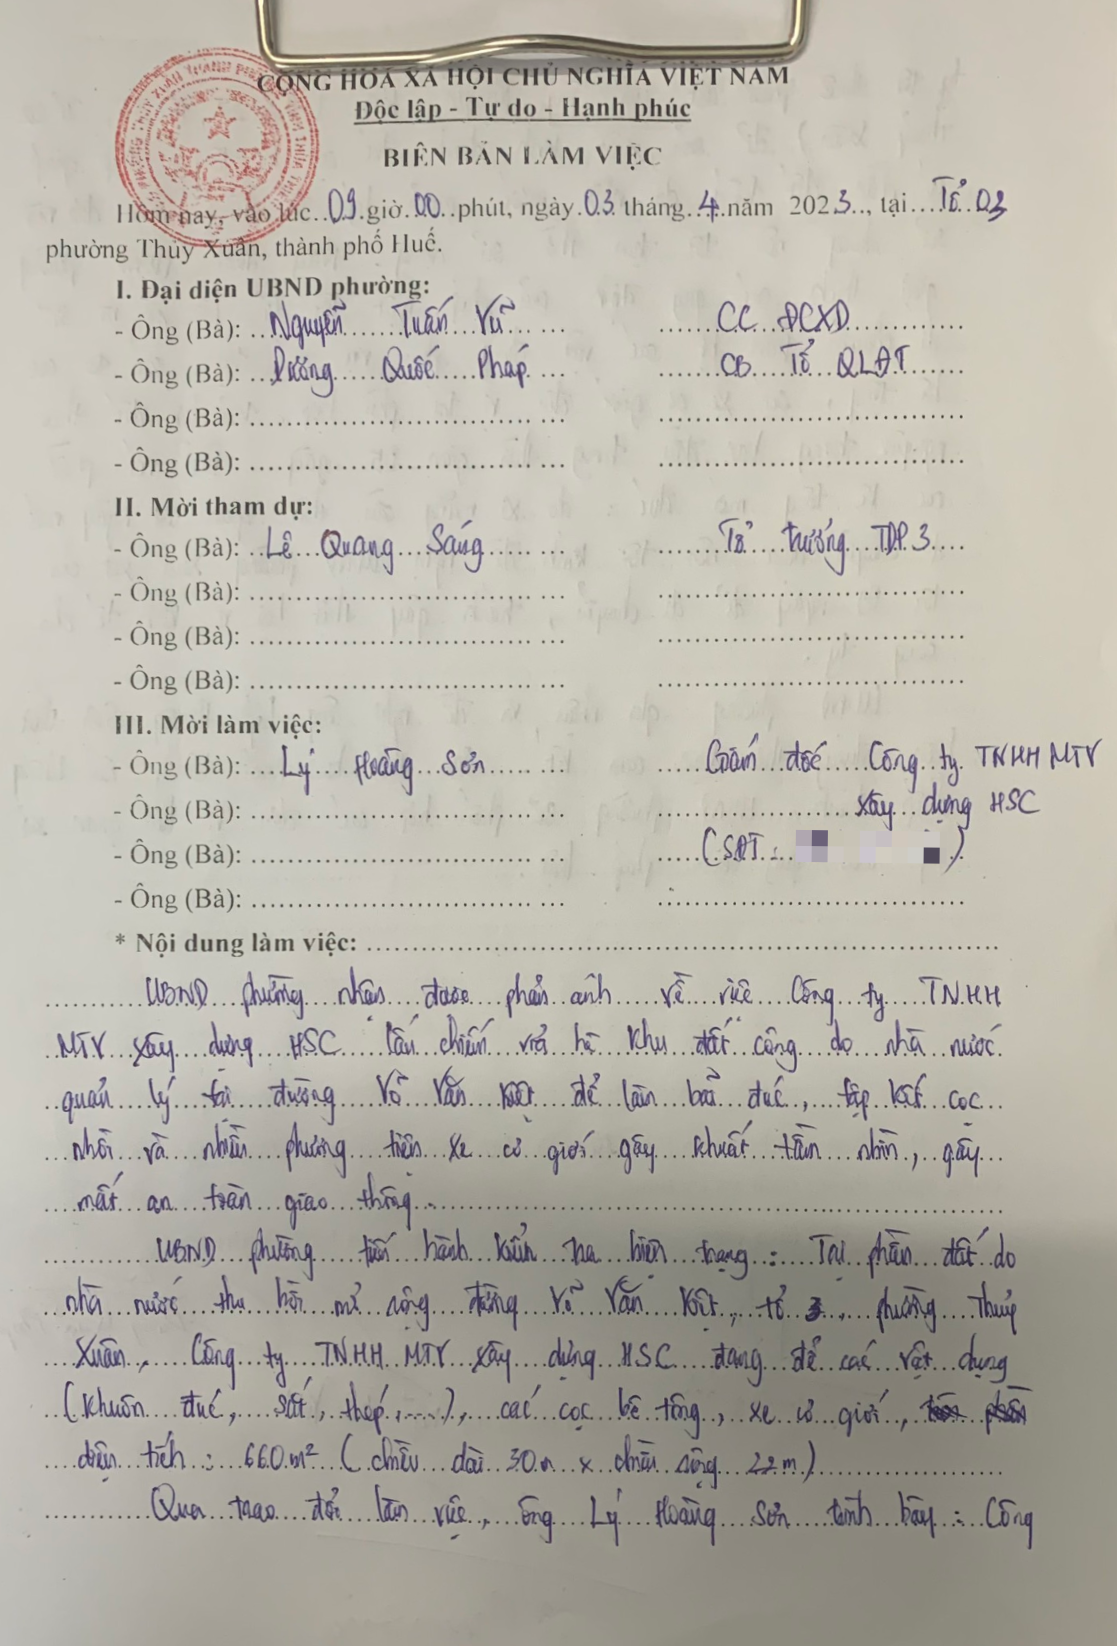 CỘNG HOÀ XÃ HỘI CHỦ NGHĨA VIỆT NAM
Độc lập - Tự do - Hạnh phúc
BIÊN BẢN LÀM VIỆC
Hôm nay, vào lúc..09.giờ.00..phút, ngày.03.tháng..4.năm 2023.., tại....Tổ..03
phường Thủy Xuân, thành phố Huế.
I. Đại diện UBND phường:
- Ông (Bà): ..Nguyễn......Tuấn...Vũ... ... .......CC...ĐCXD.............
- Ông (Bà): ...Dương.....Quốc.....Pháp. ... .......CB....Tổ...QLĐT.......
- Ông (Bà): .................................. ... .......................................
- Ông (Bà): .................................. ... .......................................
II. Mời tham dự:
- Ông (Bà): ..Lê...Quang...Sáng...... ... ........Tổ....trưởng...TDP.3....
- Ông (Bà): .................................. ... .......................................
- Ông (Bà): .................................. ... .......................................
- Ông (Bà): .................................. ... .......................................
III. Mời làm việc:
- Ông (Bà): ....Lý....Hoàng...Sơn..... ... .....Giám...đốc.....Công..ty. TNHH MTV
- Ông (Bà): .................................. ... .........................xây...dựng HSC
- Ông (Bà): .................................. ... .....(SĐT:.. )
- Ông (Bà): .................................. ... .......................................
* Nội dung làm việc: ..................................................................................
............UBND...phường...nhận...được...phản...ánh....về...việc...Công...ty....TNHH
..MTV..xây...dựng...HSC...lấn chiếm...vỉa hè...khu...đất...công...do...nhà...nước.
..quản...lý...tại...đường...Võ Văn...Kiệt...để...làm...bãi...đúc,...tập kết...cọc...
...nhồi...và...nhiều...phương...tiện...xe...cơ giới...gây...khuất...tầm...nhìn,..gây...
....mất...an...toàn...giao...thông..........................................................
.............UBND...phường.....tiến...hành...kiểm...tra...hiện...trạng..:..Tại..phần..đất..do
..nhà...nước...thu...hồi...mở..rộng...đường...Võ..Văn...Kiệt..,..tổ..3..,...phường...Thủy
...Xuân.,....Công...ty...TNHH..MTV...xây...dựng...HSC...đang...để..các...vật..dụng
..(khuôn...đúc,...sắt,..thép,.....),...các...cọc...bê tông..,..xe..cơ..giới..,
....diện...tích..:..660.m² (..chiều...dài...30.m..x..chiều..rộng...22m.)...................
............Qua...trao...đổi...làm...việc..,..ông...Lý...Hoàng...Sơn...trình...bày..:..Công